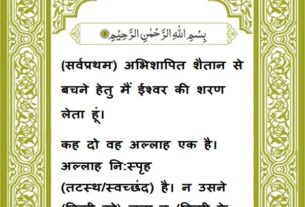 بِسْمِ اللهِ الرَّحْمٰنِ الرَّحِيْمِ
(सर्वप्रथम) अभिशापित शैतान से
बचने हेतु मैं ईश्वर की शरण
लेता हूं।
कह दो वह अल्लाह एक है।
अल्लाह नि:स्पृह
(तटस्थ/स्वच्छंद) है। न उसने